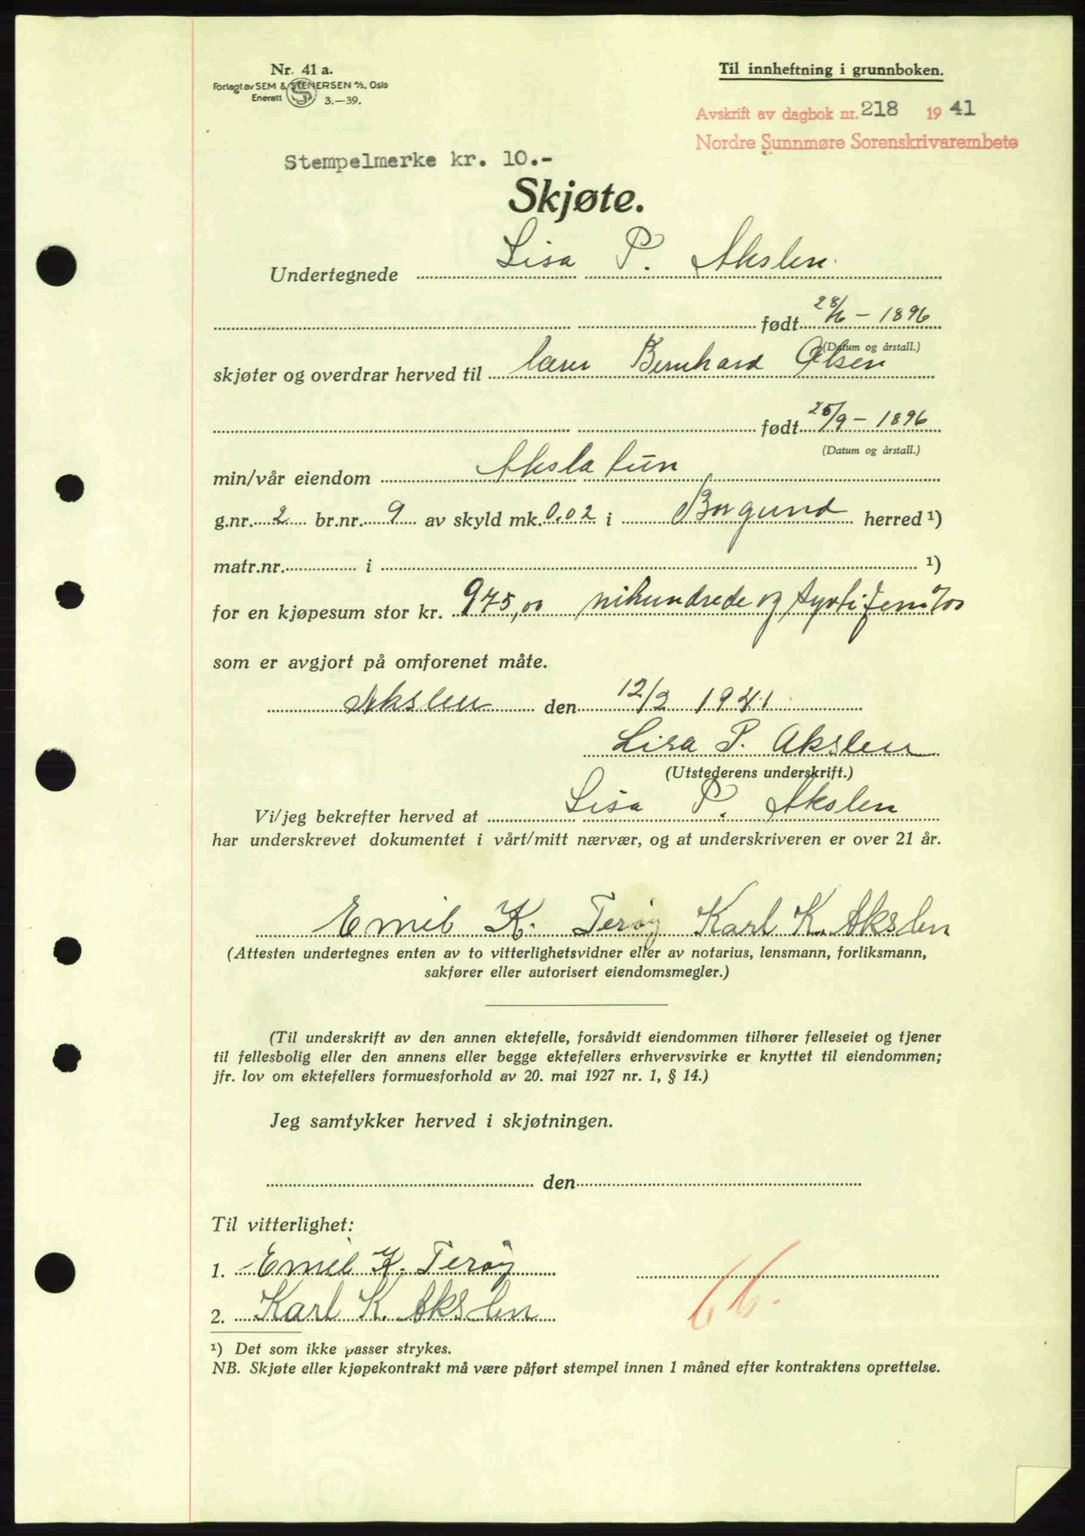 Nr. 41 a.
Forlagt av SEM & STENERSEN A/S, Oslo
Enerett 3.—39.
Til innheftning i grunnboken.
Avskrift av dagbok nr. 218 1941
Nordre Sunnmøre Sorenskrivarembete
Stempelmerke kr. 10.-
Skjøte.
Undertegnede Lisa P. Akslen
født 28/6 - 1896
(Datum og årstall.)
skjøter og overdrar herved til lærer Bernhard Olsen
født 25/9 - 1896
(Datum og årstall.)
min/vår eiendom Aksla tun
g.nr. 2 br.nr. 9 av skyld mk. 0.02 i Borgund herred ¹)
matr.nr. i ¹)
for en kjøpesum stor kr. 975,00 nihundrede og syttifem 0/00
som er avgjort på omforenet måte.
Akslen den 12/2 1941
Lisa P. Akslen
(Utstederens underskrift.)
Vi/jeg bekrefter herved at Lisa P. Akslen
har underskrevet dokumentet i vårt/mitt nærvær, og at underskriveren er over 21 år.
Emil K. Terøy Karl K. Akslen
(Attesten undertegnes enten av to vitterlighetsvidner eller av notarius, lensmann, forliksmann,
sakfører eller autorisert eiendomsmegler.)
(Til underskrift av den annen ektefelle, forsåvidt eiendommen tilhører felleseiet og tjener
til fellesbolig eller den annens eller begge ektefellers erhvervsvirke er knyttet til eiendommen;
jfr. lov om ektefellers formuesforhold av 20. mai 1927 nr. 1, § 14.)
Jeg samtykker herved i skjøtningen.
den
Til vitterlighet:
1. Emil K. Terøy
2. Karl K. Akslen
66.
¹) Det som ikke passer strykes.
NB. Skjøte eller kjøpekontrakt må være påført stempel innen 1 måned efter kontraktens oprettelse.